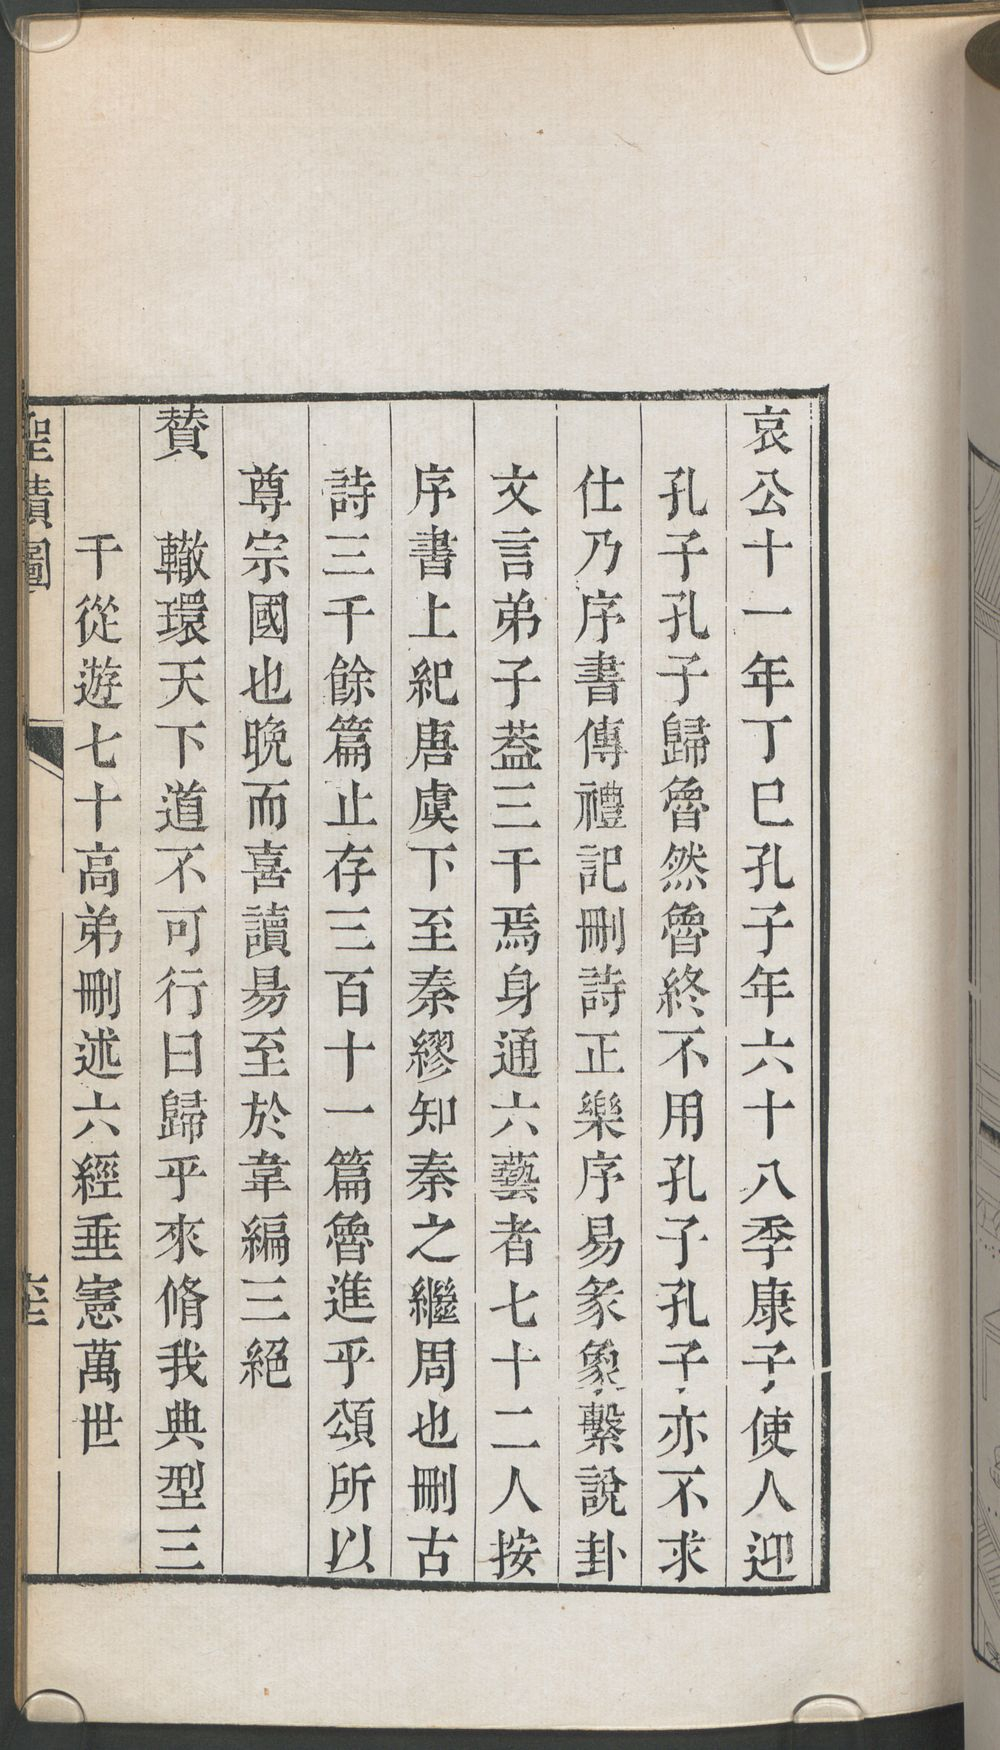 哀公十一年丁巳孔子年六十八季康子使人迎
孔子孔子歸魯然魯終不用孔子孔子亦不求
仕乃序書傳禮記刪詩正樂序易彖象繫說卦
文言弟子蓋三千焉身通六藝者七十二人按
序書上紀唐虞下至秦繆知秦之繼周也刪古
詩三千餘篇止存三百十一篇魯進乎頌所以
尊宗國也晚而喜讀易至於韋編三絕
贊　轍環天下道不可行曰歸乎來脩我典型三
千從遊七十高弟刪述六經垂憲萬世
聖蹟圖